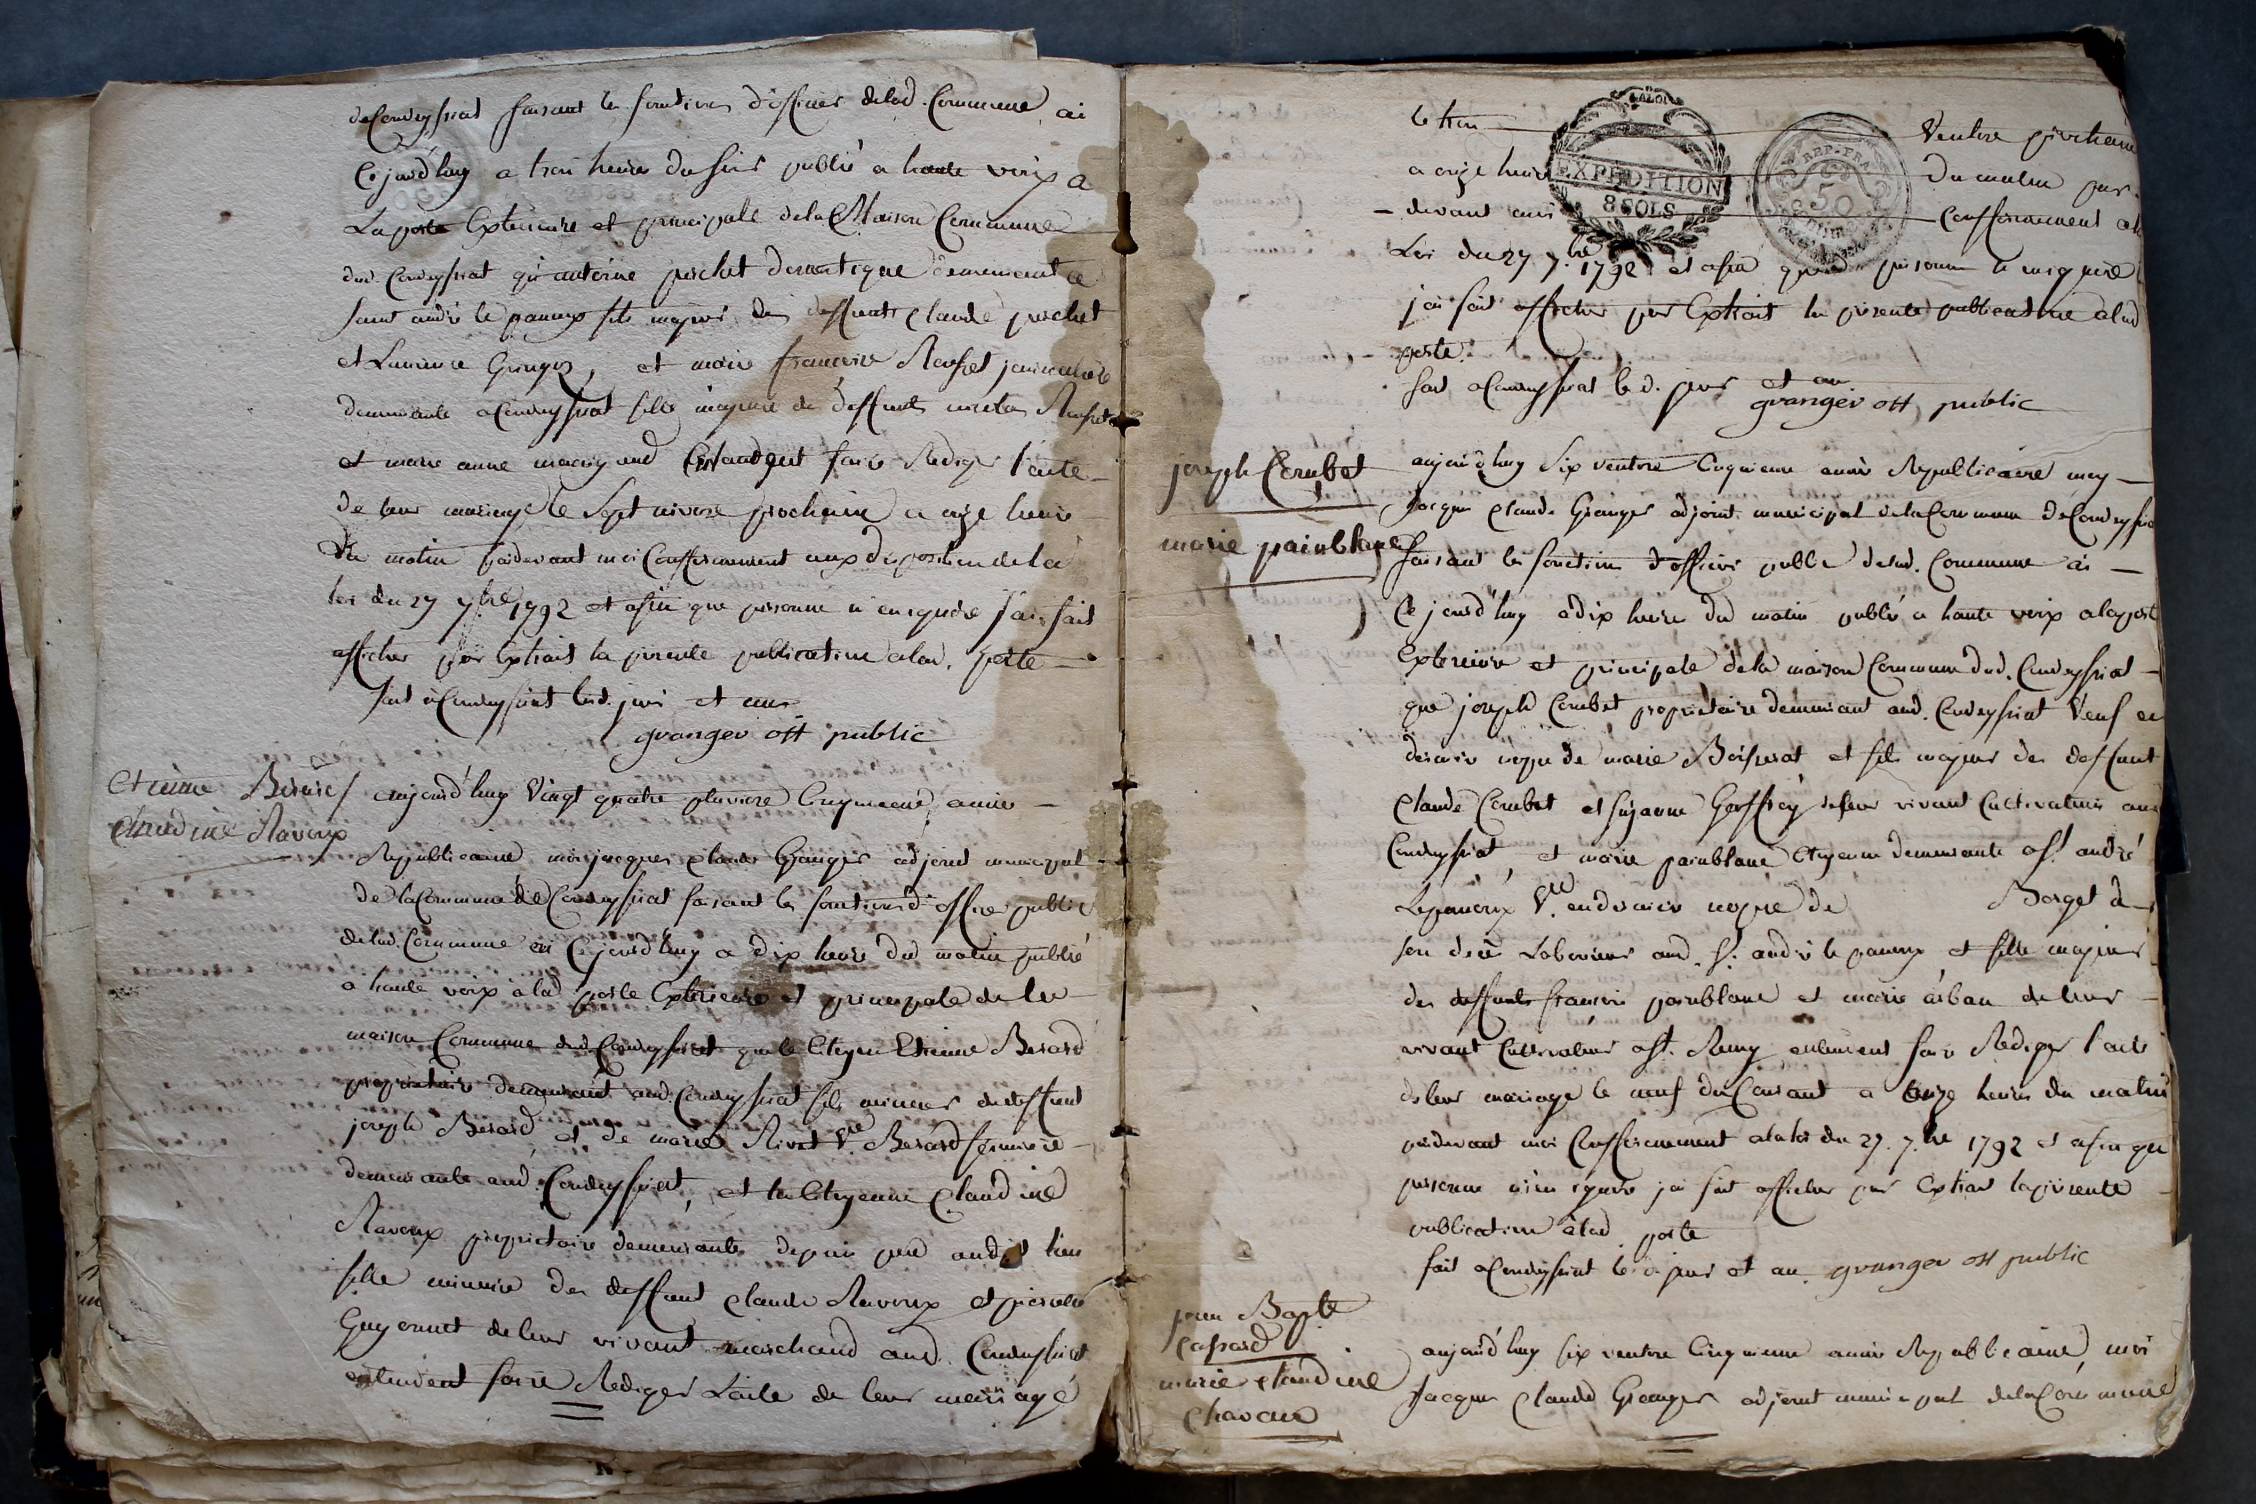 de Condeyssiat faisant les fonctions d'officier de lad. Commune, ai
Cejourd'huy a trois heures du soir publié a haute voix a
La porte Exterieure et principalle de la Maison Commune
dud. Condeyssiat qu'antoine pochet domestique demeurant a
saint andré le panoux fils majeur des deffunts Claude pochet
et Laurence et marie francoise
demeurante a Condeyssiat fille majeure de deffunts
et marie anne Entendent faire Rediger l'acte
de leur mariage le Sept nivose prochain a onze heures
du matin pardevant moi Confformement aux disposition de la
loi du 27 7.bre 1792 et afin que personne n'en ignore j'ai fait
afficher par Extrait la presente publication a lad. porte
fait a Condeyssiat led. jour et an
granger off public
Etienne Berard
Claudine Ravoux
aujourd'huy Vingt quatre pluviose Cinquieme année
Republicaine, moi jacques Claude Granger adjoint municipal
de la Commune de Condeyssiat faisant les fonctions d'officier public
de lad. Commune ai Cejourd'huy a dix heures du matin publié
a haute voix a lad. porte Exterieure et principale de la
maison Commune dud. Condeyssiat que le Citoyen Etienne Berard
proprietaire demeurant aud. Condeyssiat fils mineur de deffunt
joseph Berard et de marie Rivat V.ve Berard fermiere
demeurante aud. Condeyssiat, et la Citoyenne Claudine
Ravoux proprietaire demeurante depuis peu audit lieu
fille mineure des deffunt Claude Ravoux et pierrette
Guyonnet de leur vivant marchand aud. Condeyssiat
entendent faire Rediger L'acte de leur mariage
le trois Ventose prochain
a onze heures du matin par
devant moi Confformement a la
EXPEDITION
8 SOLS
REP. FRA.
50
Loi du 27 7.bre 1792 et afin que personne n'en ignore
j'ai fait afficher par Extrait la presente publication a lad
porte.
fait a Condeyssiat le d. jour et an
granger off public
joseph Combet
marie painblanc
aujourd'huy Six ventose Cinquieme année Republicaine moy
Jacques Claude Granger adjoint municipal de la Commune de Condeyssiat
faisant les fonction d'officier public de lad. Commune ai
Ce jourd'huy a dix heures du matin publié a haute voix a la porte
Exterieure et principale de la maison Commune dud. Condeyssiat
que joseph Combet proprietaire demeurant aud. Condeyssiat Veuf en
dernier nopce de marie et fils majeur des deffunt
Claude Combet et suzanne Geoffray de leur vivant Cultivateurs aud
Condeyssiat, et marie painblanc Citoyenne demeurante a st. andré
Lepanoux V.ve en dernier nopce de Borget de
son Laboureur aud. st. andré le panoux et fille majeure
des deffunts francois painblanc et marie de leur
vivant Cultivateurs a st. Remy entendent faire Rediger l'acte
de leur mariage le neuf du Courant a onze heures du matin
pardevant moi Confformement a la loi du 27. 7.bre 1792 et afin que
personne n'en ignore j'ai fait afficher par Extrait la presente
publication a lad. porte
fait a Condeyssiat le d. jour et an. granger off public
jean Bapte
marie Claudine
aujourd'huy six ventose Cinquieme année Republicaine, moi
Jacques Claude Granger adjoint municipal de la Commune